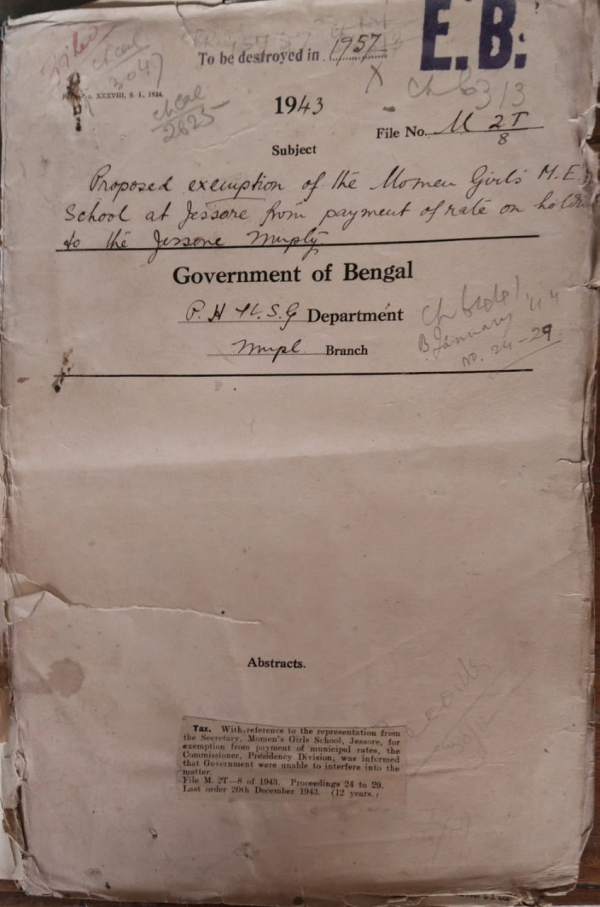 E.B.
To be destroyed in 1957
3047
XXXVIII, S. I., 1934.
2625
1943
Subject
File No. M 2T
8
Proposed exemption of the Momen Girls' M.E.
School at Jessore from payment of rate on
to the Jessore Muply.
Government of Bengal
P. H & L. S. G Department
Mupl. Branch
B January '44
No. 24-29
Abstracts.
Tax. With reference to the representation from
the Secretary, Momen's Girls School, Jessore, for
exemption from payment of municipal rates, the
Commissioner, Presidency Division, was informed
that Government were unable to interfere into the
matter.
File M. 2T—8 of 1943. Proceedings 24 to 29.
Last order 20th December 1943. (12 years.)